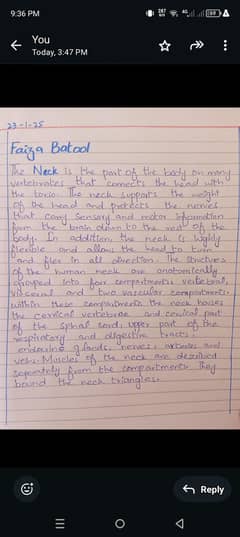 9:36 PM
You
Today, 3:47 PM
23-1-25
Faiza Batool
The Neck is the part of the body on many
vertebrates that connects the head with
the torso. The neck supports the weight
of the head and protects the nerves
that carry sensory and motor information
from the brain down to the rest of the
body. In addition the neck is highly
flexible and allows the head to turn
and flex in all direction. The structures
of the human neck are anatomically
grouped into four compartments vertebral,
visceral and two vascular compartments.
within these compartments the neck houses
the cervical vertebrae and cervical part
of the spinal cord, upper part of the
respiratory and digestive tracts,
endocrine glands, nerves, arteries and
veins. Muscles of the neck are described
seperately from the compartments. They
bound the neck triangles.
Reply